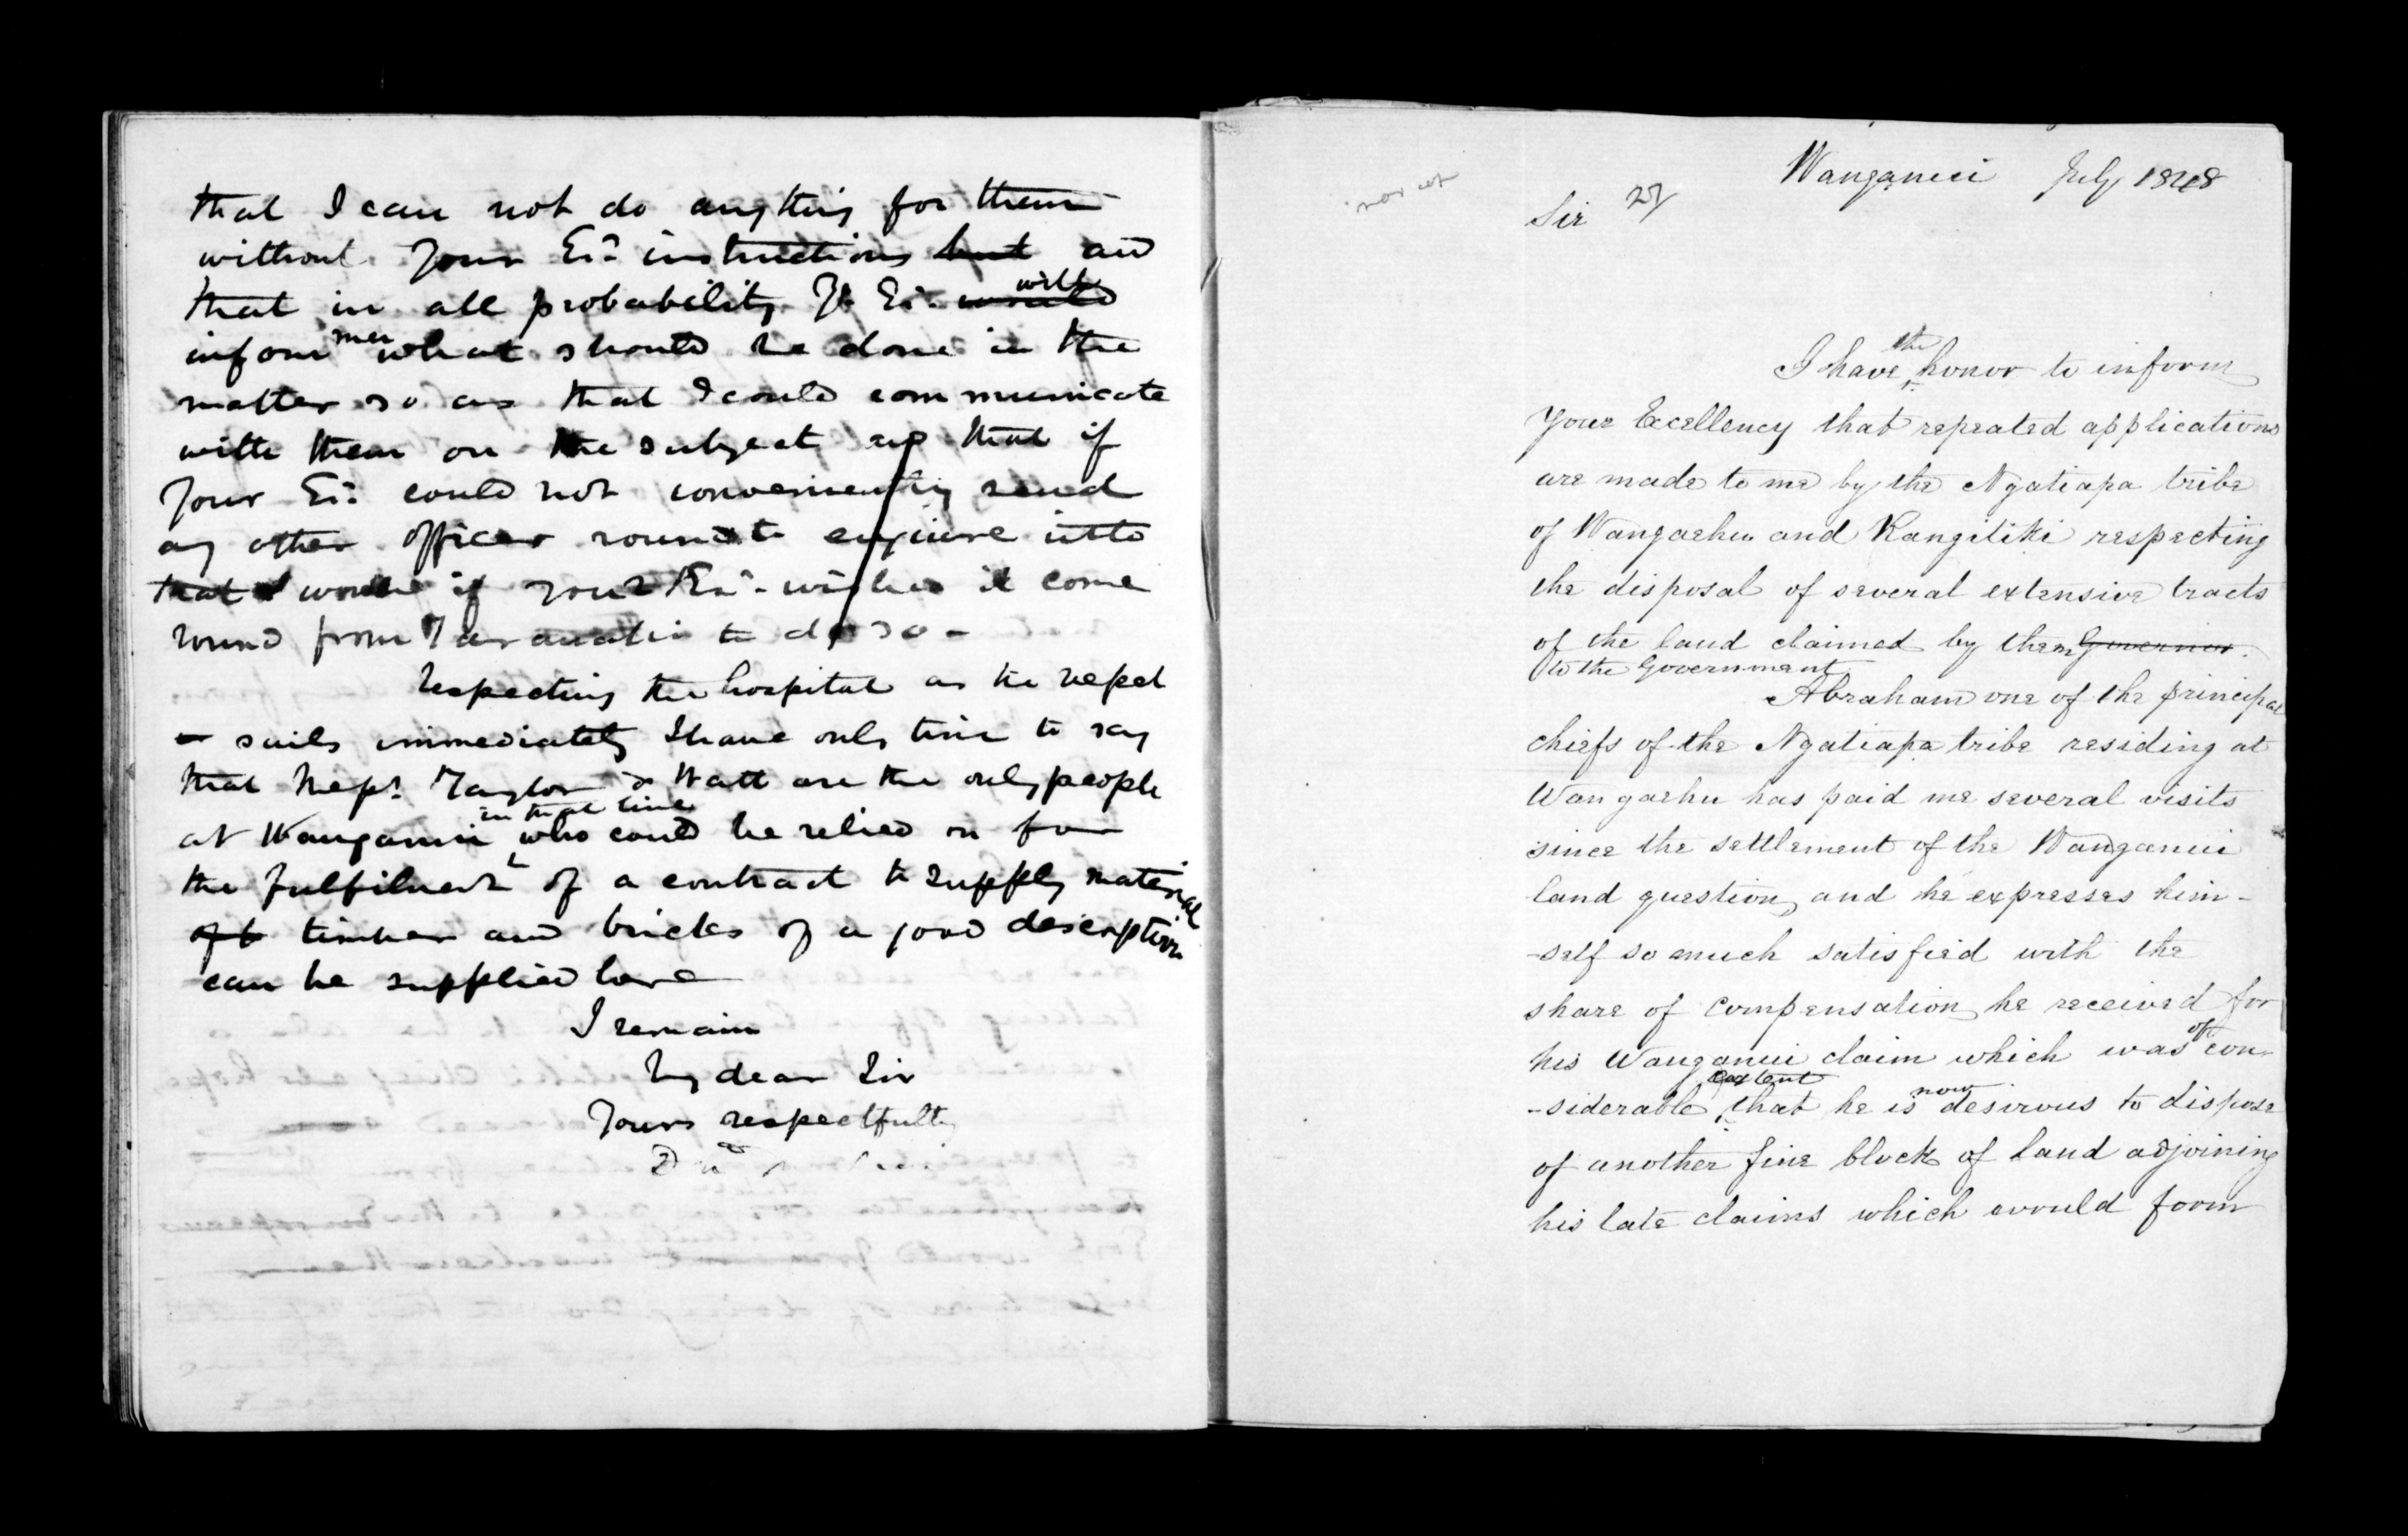 that I can not do anything for them
without Your Ex: instructions but and
that in all probability Yr Ex: would will
inform me what should be done in the
matter so as that I could communicate
with them on the subject and that if
Your Ex: could not conveniently send
any other officer round to enquire into
that I would if your Ex: wishes it come
round from Taranaki to do so -
Respecting the hospital as the vessel
sails immediately I have only time to say
that Messrs Taylor & Watt are the only people
at Wanganui in that line who could be relied on for
the fulfilment of a contract to supply material
of timber and bricks of a good description
can be supplied here
I remain
My dear Sir
Yours respectfully
Wanganui July 1848
Sir 27
I have the honor to inform
Your Excellency that repeated applications
are made to me by the Ngatiapa tribe
of Wangaehu and Rangitiki respecting
the disposal of several extensive tracts
of the land claimed by them Governor.
to the Government
Abraham one of the principal
chiefs of the Ngatiapa tribe residing at
Wangaehu has paid me several visits
since the settlement of the Wanganui
land question, and he expresses him-
-self so much satisfied with the
share of compensation he received for
his Wanganui claim which was of con-
-siderable extent that he is now desirous to dispose
of another fine block of land adjoining
his late claims which would form